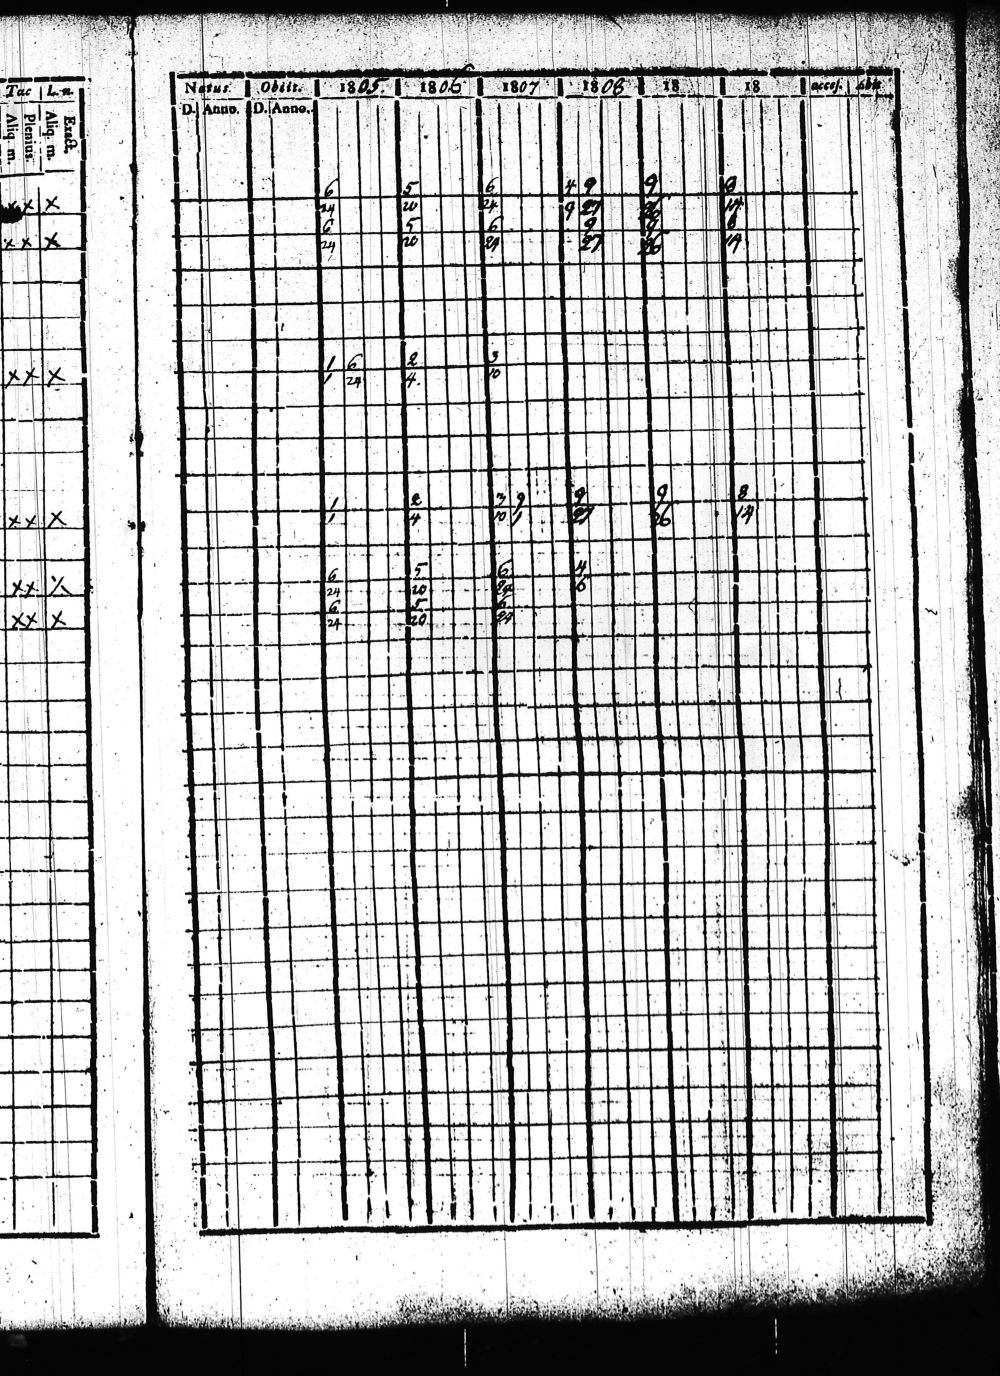 Tac L. n. Natus. Obiit. 1805. 1806 1807 1808 18 18 accef. Abiit
Aliq. m. Plenius. Aliq. m. Exact. D. Anno. D. Anno.
6 5 6 4 9 9 8
x x x 24 20 24 9 27 26 14
6 5 6 9 9 8
x x x 24 20 24 27 26 14
1 6 2 3
x x x 1 24 4. 10
1 2 3 9 9 9 8
x x x 1 4 10 1 27 26 14
6 5 6 4
x x x 24 20 24 6
6 5 6
x x x 24 20 24